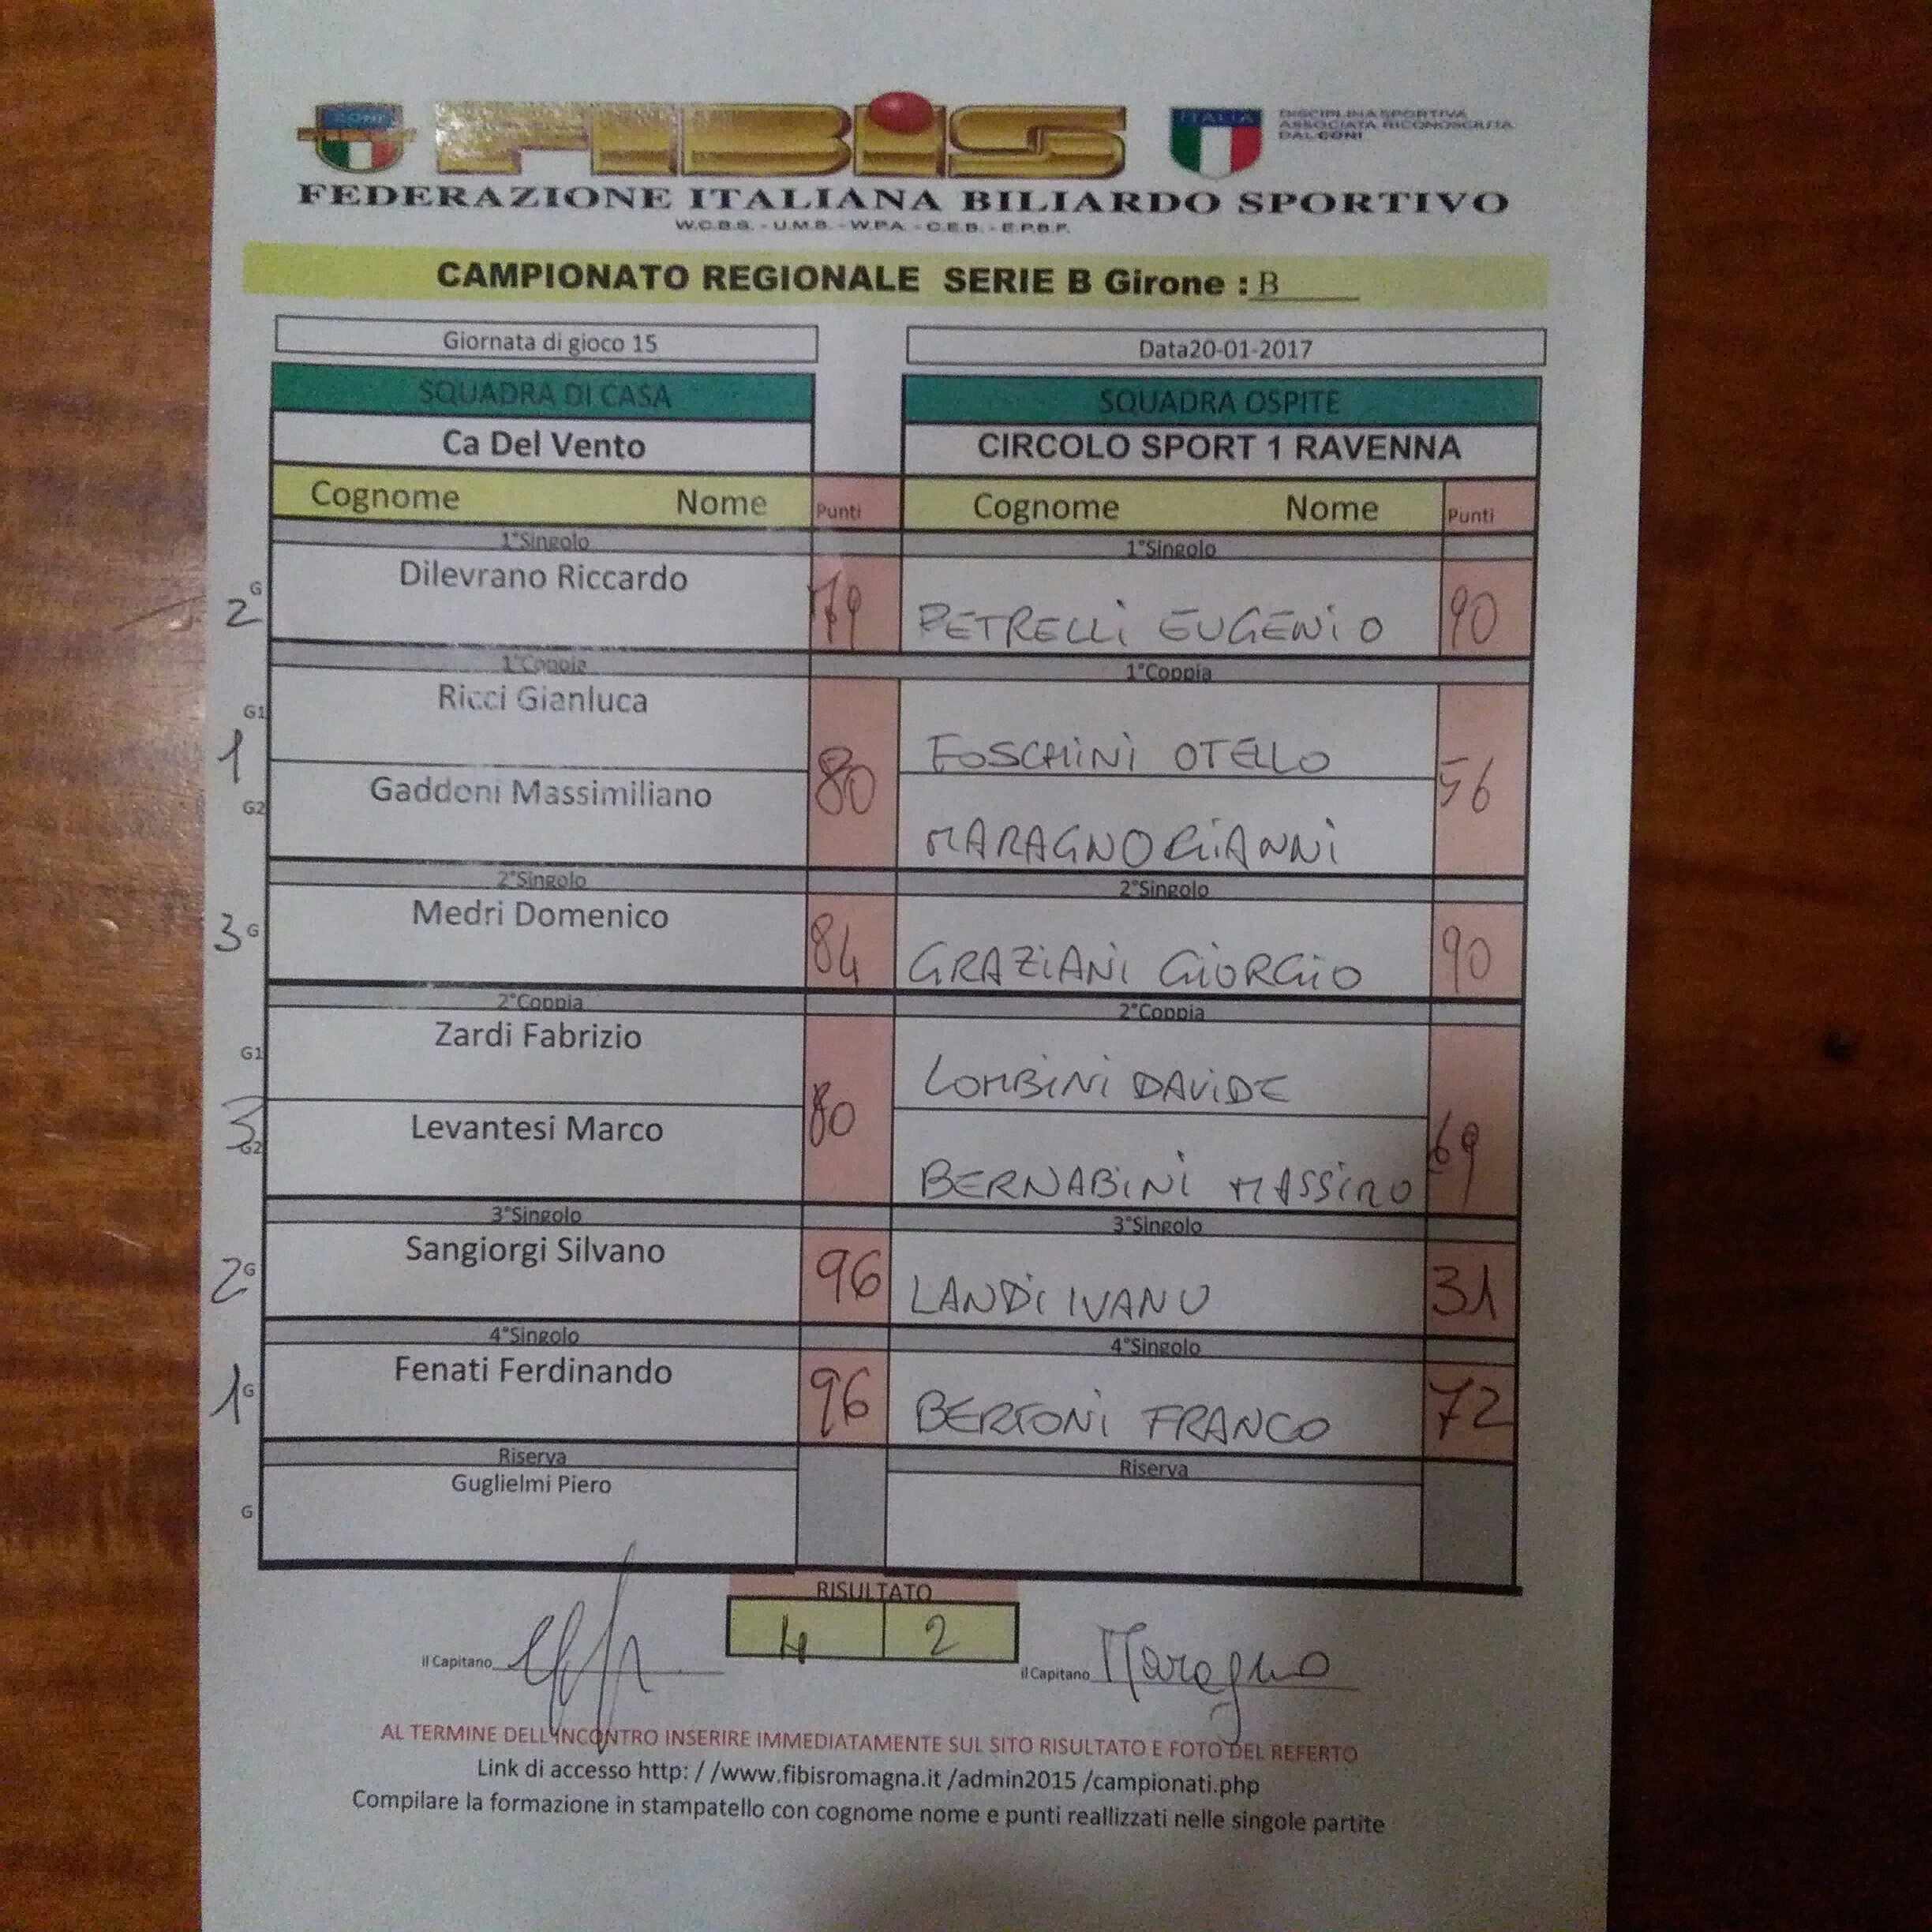 CONI
FIBiS
ITALIA
DISCIPLINA SPORTIVA
ASSOCIATA RICONOSCIUTA
DAL CONI
FEDERAZIONE ITALIANA BILIARDO SPORTIVO
W.C.B.S. - U.M.B. - W.P.A. - C.E.B. - E.P.B.F.
CAMPIONATO REGIONALE SERIE B Girone : B
Giornata di gioco 15 Data20-01-2017
SQUADRA DI CASA SQUADRA OSPITE
Ca Del Vento CIRCOLO SPORT 1 RAVENNA
Cognome Nome Punti Cognome Nome Punti
1°Singolo 1°Singolo
2 G Dilevrano Riccardo 79 PETRELLI EUGENIO 90
1°Coppia 1°Coppia
G1 Ricci Gianluca FOSCHINI OTELLO
1 80 56
G2 Gaddoni Massimiliano MARAGNO GIANNI
2°Singolo 2°Singolo
3 G Medri Domenico 84 GRAZIANI GIORGIO 90
2°Coppia 2°Coppia
G1 Zardi Fabrizio LOMBINI DAVIDE
3 80 69
G2 Levantesi Marco BERNABINI MASSIMO
3°Singolo 3°Singolo
2 G Sangiorgi Silvano 96 LANDI IVANO 31
4°Singolo 4°Singolo
1 G Fenati Ferdinando 96 BERTONI FRANCO 72
Riserva Riserva
G Guglielmi Piero
RISULTATO
4 2
il Capitano il Capitano Maragno
AL TERMINE DELL'INCONTRO INSERIRE IMMEDIATAMENTE SUL SITO RISULTATO E FOTO DEL REFERTO
Link di accesso http: / /www.fibisromagna.it /admin2015 /campionati.php
Compilare la formazione in stampatello con cognome nome e punti reallizzati nelle singole partite